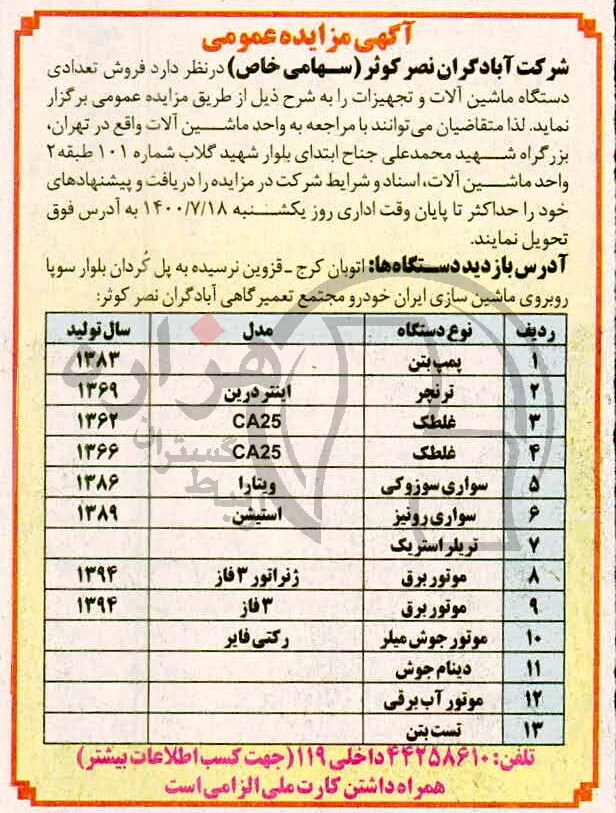 آگهی مزایده عمومی
شرکت آبادگران نصر کوثر (سهامی خاص) درنظر دارد فروش تعدادی
دستگاه ماشین آلات و تجهیزات را به شرح ذیل از طریق مزایده عمومی برگزار
نماید. لذا متقاضیان می‌توانند با مراجعه به واحد ماشین آلات واقع در تهران،
بزرگراه شهید محمدعلی جناح ابتدای بلوار شهید گلاب شماره ۱۰۱ طبقه۲
واحد ماشین آلات، اسناد و شرایط شرکت در مزایده را دریافت و پیشنهادهای
خود را حداکثر تا پایان وقت اداری روز یکشنبه ۱۴۰۰/۷/۱۸ به آدرس فوق
تحویل نمایند.
آدرس بازدید دستگاه‌ها: اتوبان کرج - قزوین نرسیده به پل کُردان بلوار سوپا
روبروی ماشین سازی ایران خودرو مجتمع تعمیرگاهی آبادگران نصر کوثر:
ردیف نوع دستگاه مدل سال تولید
۱ پمپ بتن ۱۳۸۳
۲ ترنچر اینتر درین ۱۳۶۹
۳ غلطک CA25 ۱۳۶۲
۴ غلطک CA25 ۱۳۶۶
۵ سواری سوزوکی ویتارا ۱۳۸۶
۶ سواری رونیز استیشن ۱۳۸۹
۷ تریلر استریک
۸ موتور برق ژنراتور ۳ فاز ۱۳۹۴
۹ موتور برق ۳ فاز ۱۳۹۴
۱۰ موتور جوش میلر رکتی فایر
۱۱ دینام جوش
۱۲ موتور آب برقی
۱۳ تست بتن
تلفن: ۴۴۲۵۸۶۱۰ داخلی ۱۱۹ (جهت کسب اطلاعات بیشتر)
همراه داشتن کارت ملی الزامی است
هزاره
گستران